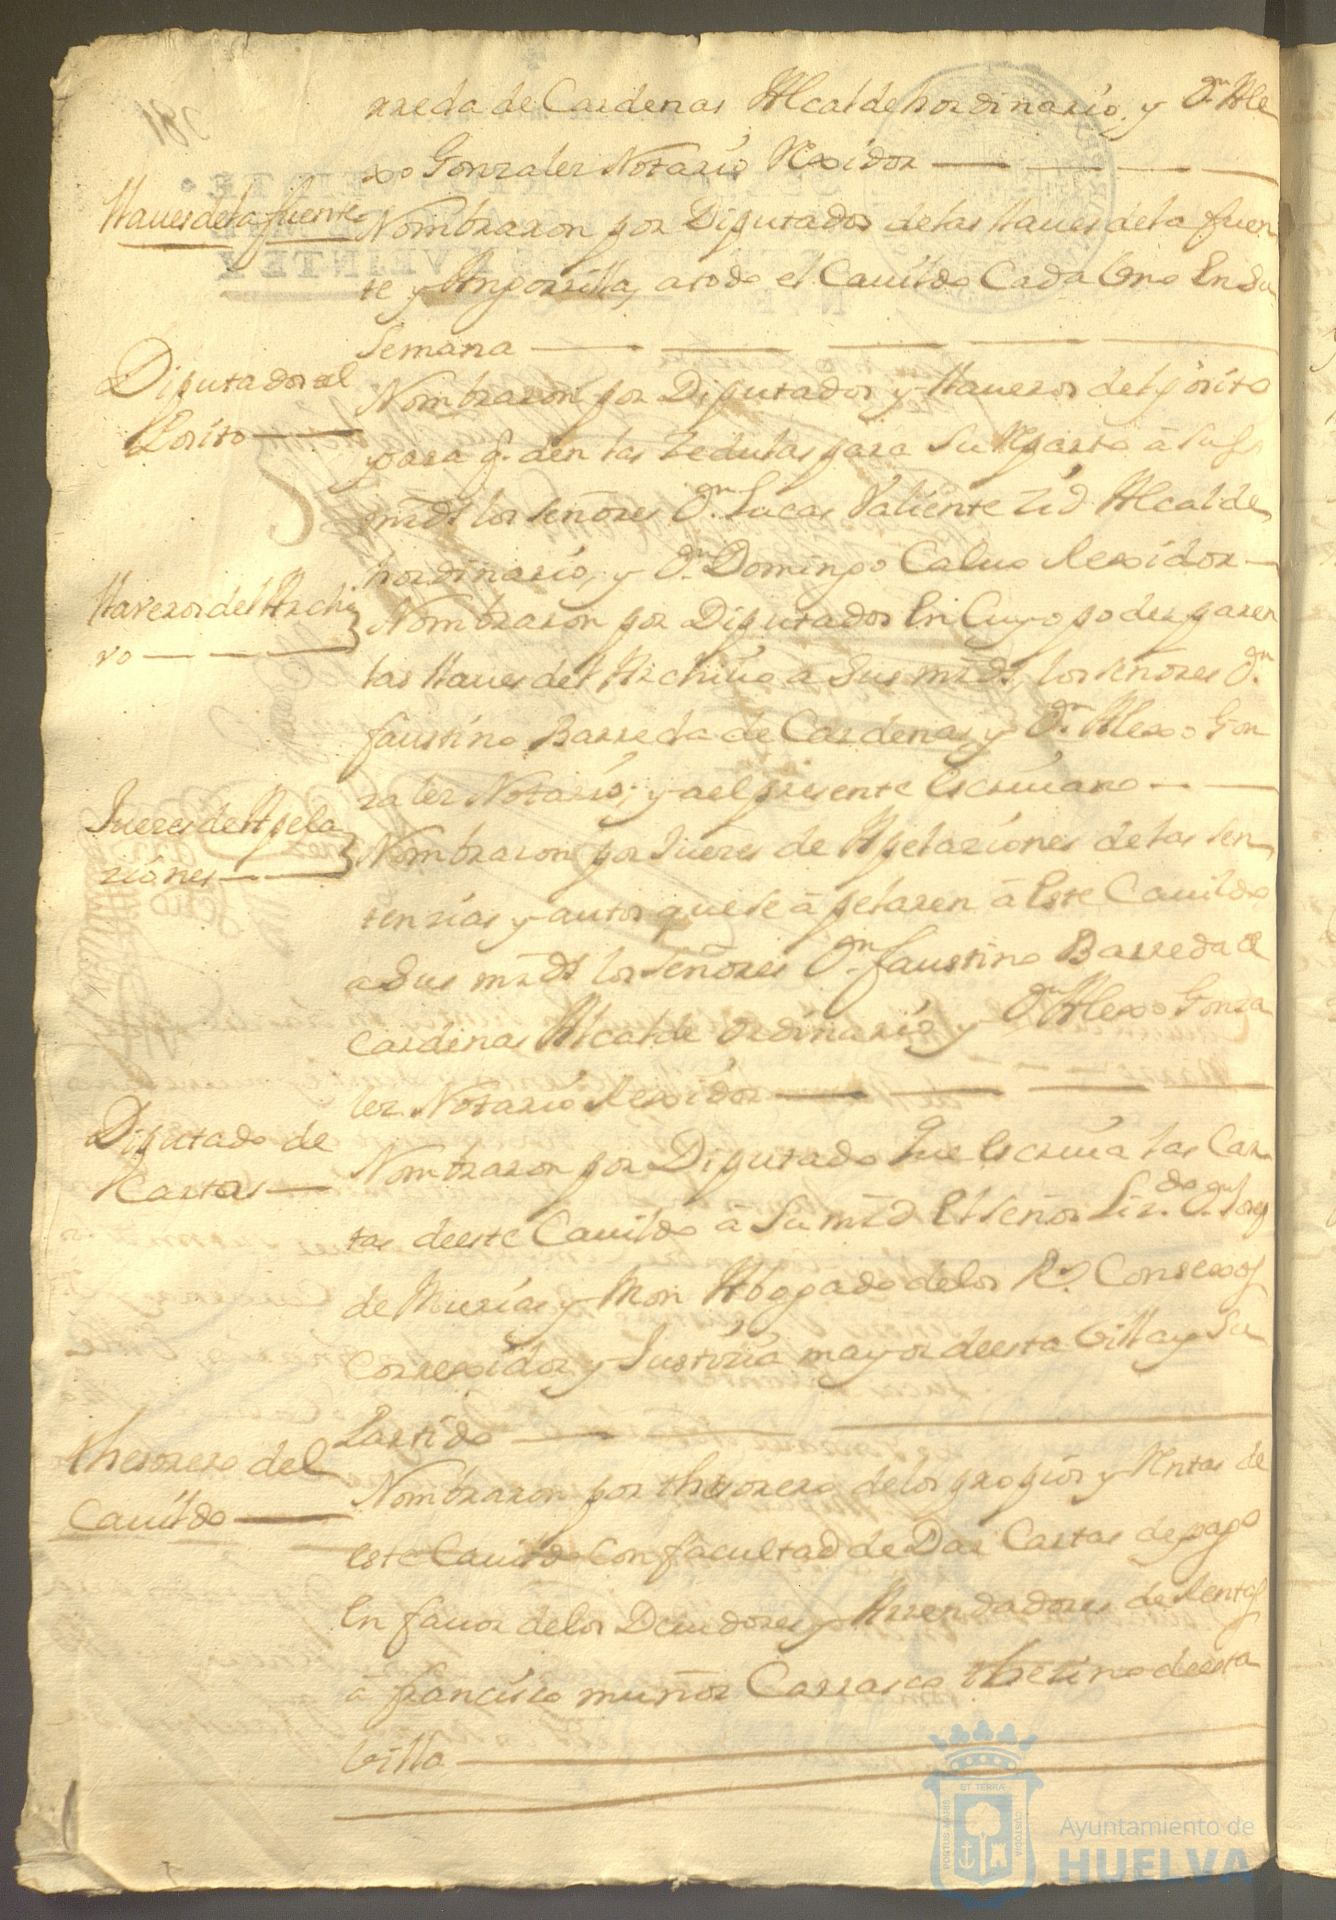 rreda de Cardenas Alcalde hordinario, y Dn. Ale
xo Gonzalez Notario Rexidor
llaues de la fuente
Nombraron por Diputados de las llaues de la fuen
te y Angorrilla, a todo el Cauildo Cada Vno En su
Semana
Diputados al
Posito
Nombraron por Diputados y llaueros del posito
para q. den las Zedulas para Su Rparto â Sus
mrds los señores Dn. Lucas Valiente Zid Alcalde
hordinario, y Dn. Domingo Caluo Rexidor
llaveros del Archi
vo
Nombraron por Diputados En Cuyo poder paren
las llaues del Archiuo a Sus mrds, los señores Dn.
faustino Barreda de Cardenas y Dn. Alexo Gon
zalez Notario; y a el presente Escriuano
Juezes de Apela
ziones
Nombraron por Juezes de Apelaziones de las Sen
tenzias y autos que se â pelaren â Este Cauildo
a Sus mrds los Señores Dn. faustino Barreda de
Cardenas Alcalde Ordinario y Dn. Alexo Gonza
lez Notario Rexidor
Diputado de
Cartas
Nombraron por Diputado Que Escriua las Car
tas deeste Cauildo â Su mrd El Señor Liz.do Dn. Jorg
de Murias y Mon Abogado de los Rs Consexos
Correxidor y Justizia mayor deesta Villa y Su
Partido
thesorero del
Cauildo
Nombraron por thesorero de los propios y Rentas de
este Cauildo Con facultad de Dar Cartas de pago
En fauor de los Deudores y Arrendadores de Rentas
â francisco muñoz Carrasco Vezino deesta
Villa
PORTUS MARIS
ET TERRÆ
CUSTODIA
Ayuntamiento de
HUELVA